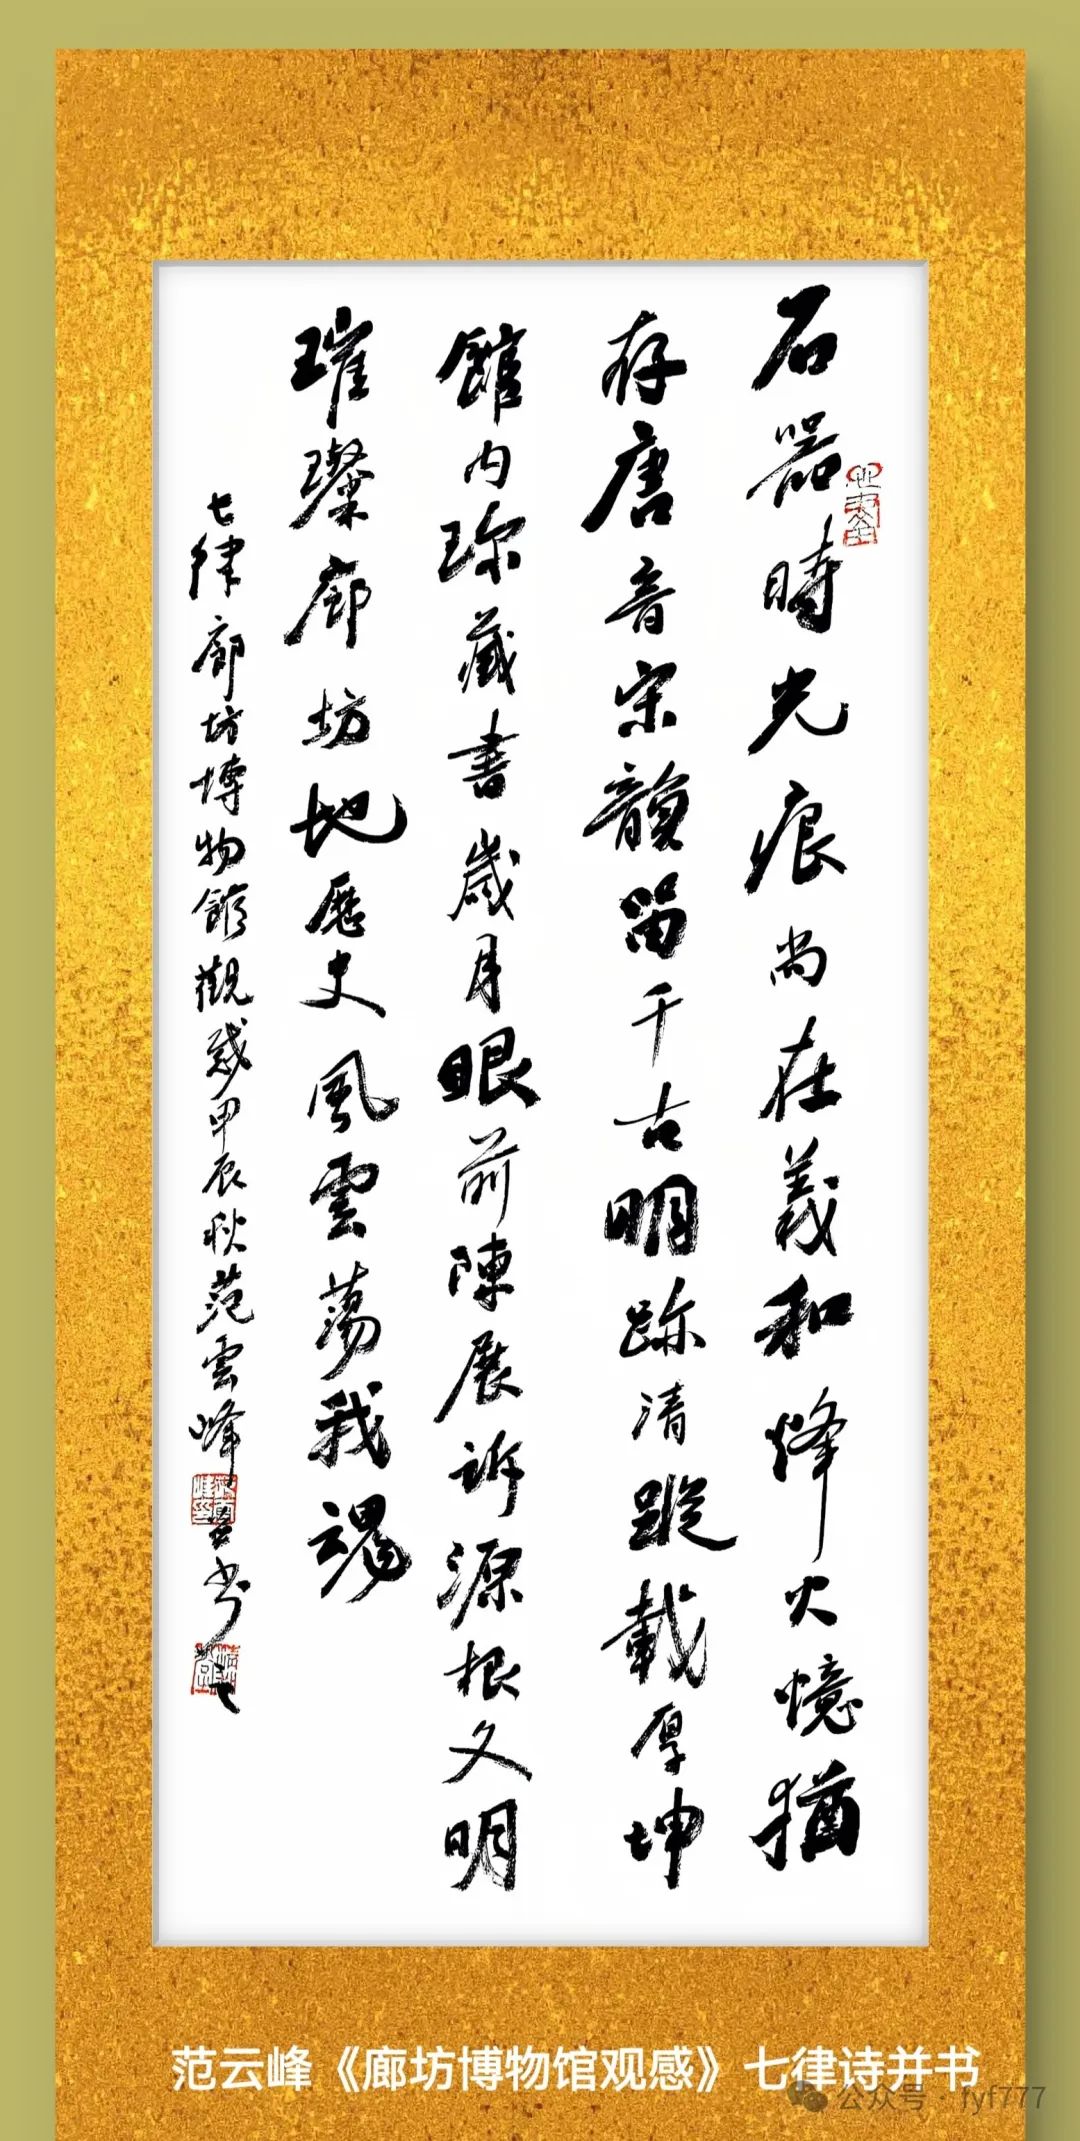 石器時光痕尚在義和烽火憶猶
存唐音宋韻留千古明跡清蹤載厚坤
館内珍藏書歲月眼前陳展訴源根文明
璀璨廊坊地歷史風雲蕩我魂
七律廊坊博物館觀感甲辰秋范雲峰并书
范云峰《廊坊博物馆观感》七律诗并书
公众号·fyf777